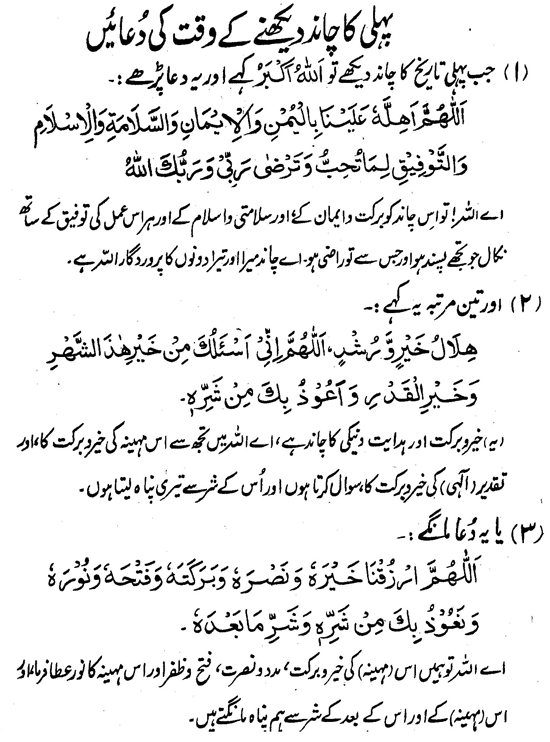 پہلی کا چاند دیکھنے کے وقت کی دُعائیں
(۱) جب پہلی تاریخ کا چاند دیکھے تو اَللہُ اَکْبَرُ کہے اور یہ دعا پڑھے :۔
اَللّٰھُمَّ اَھِلَّہٗ عَلَیْنَا بِالْیُمْنِ وَالْاِیْمَانِ وَالسَّلَامَۃِ وَالْاِسْلَامِ
وَالتَّوْفِیْقِ لِمَا تُحِبُّ وَتَرْضٰی رَبِّیْ وَرَبُّكَ اللہُ
اے اللہ! تو اس چاند کو برکت و ایمان کے اور سلامتی و اسلام کے اور ہر اس عمل کی توفیق کے ساتھ
نکال جو تجھے پسند ہو اور جس سے تو راضی ہو۔ اے چاند میرا اور تیرا دونوں کا پروردگار اللہ ہے۔
(۲) اور تین مرتبہ یہ کہے :۔
ھِلَالُ خَیْرٍ وَّرُشْدٍ، اَللّٰھُمَّ اِنِّیْ اَسْئَلُكَ مِنْ خَیْرِ ھٰذَا الشَّھْرِ
وَخَیْرِ الْقَدْرِ وَاَعُوْذُ بِكَ مِنْ شَرِّہٖ۔
(یہ) خیر و برکت اور ہدایت و نیکی کا چاند ہے، اے اللہ میں تجھ سے اس مہینہ کی خیر و برکت کا، اور
تقدیر (الٰہی) کی خیر و برکت کا، سوال کرتا ہوں اور اُس کے شر سے تیری پناہ لیتا ہوں۔
(۳) یا یہ دُعا مانگے :۔
اَللّٰھُمَّ ارْزُقْنَا خَیْرَہٗ وَنَصْرَہٗ وَبَرَکَتَہٗ وَفَتْحَہٗ وَنُوْرَہٗ
وَنَعُوْذُ بِكَ مِنْ شَرِّہٖ وَشَرِّ مَا بَعْدَہٗ۔
اے اللہ تو ہمیں اس (مہینہ) کی خیر و برکت، مدد و نصرت، فتح و ظفر اور اس مہینہ کا نور عطا فرما، اور
اس (مہینہ) کے اور اس کے بعد کے شر سے ہم پناہ مانگتے ہیں۔